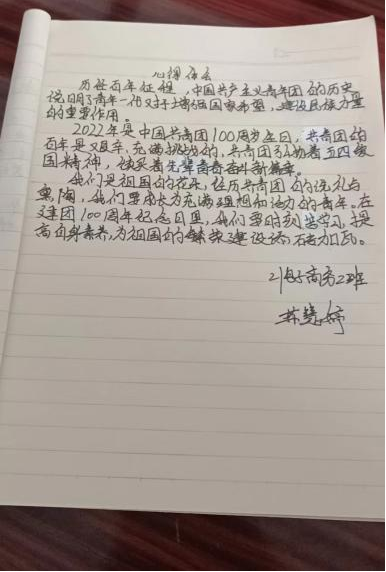 心得体会
历经百年征程，中国共产主义青年团的历史
说明了青年一代对于增强国家希望，建设民族力量
的重要作用。
2022年是中国共青团100周岁生日，共青团的
百年是艰辛，充满挑战的，共青团引领着五四爱
国精神，谈采着先辈青春奋斗新篇章。
我们是祖国的花朵，经历共青团的洗礼与
熏陶，我们要成长为充满理想和活力的青年。在
建团100周年纪念日里，我们要时刻学习，提
高自身素养，为祖国的繁荣建设添砖加瓦。
21电子商务2班